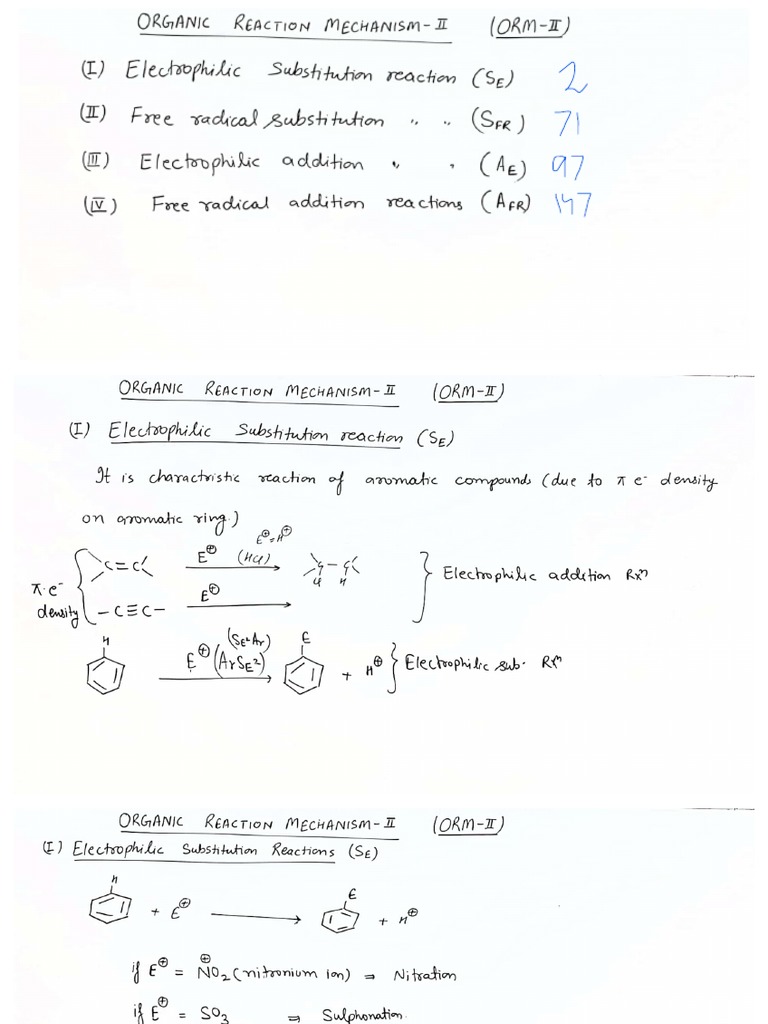 ORGANIC REACTION MECHANISM-II (ORM-II)
(I) Electrophilic Substitution reaction (SE) 2
(II) Free radical substitution " " (SFR) 71
(III) Electrophilic addition " " (AE) 97
(IV) Free radical addition reactions (AFR) 147
ORGANIC REACTION MECHANISM-II (ORM-II)
(I) Electrophilic Substitution reaction (SE)
It is charactristic reaction of aromatic compounds (due to π e⁻ density
on aromatic ring.)
E⊕=H⊕
C=C E⊕ (HCl) C-C
Cl H
Electrophilic addition Rxn
π·e⁻
density
-C≡C- E⊕
H E⊕ (ArSE2) (SE2Ar) E + H⊕ Electrophilic sub. Rxn
ORGANIC REACTION MECHANISM-II (ORM-II)
(I) Electrophilic Substitution Reactions (SE)
H + E⊕ E + H⊕
if E⊕ = N⊕O2 (nitronium ion) ⇒ Nitration
if E⊕ = SO3 ⇒ Sulphonation.